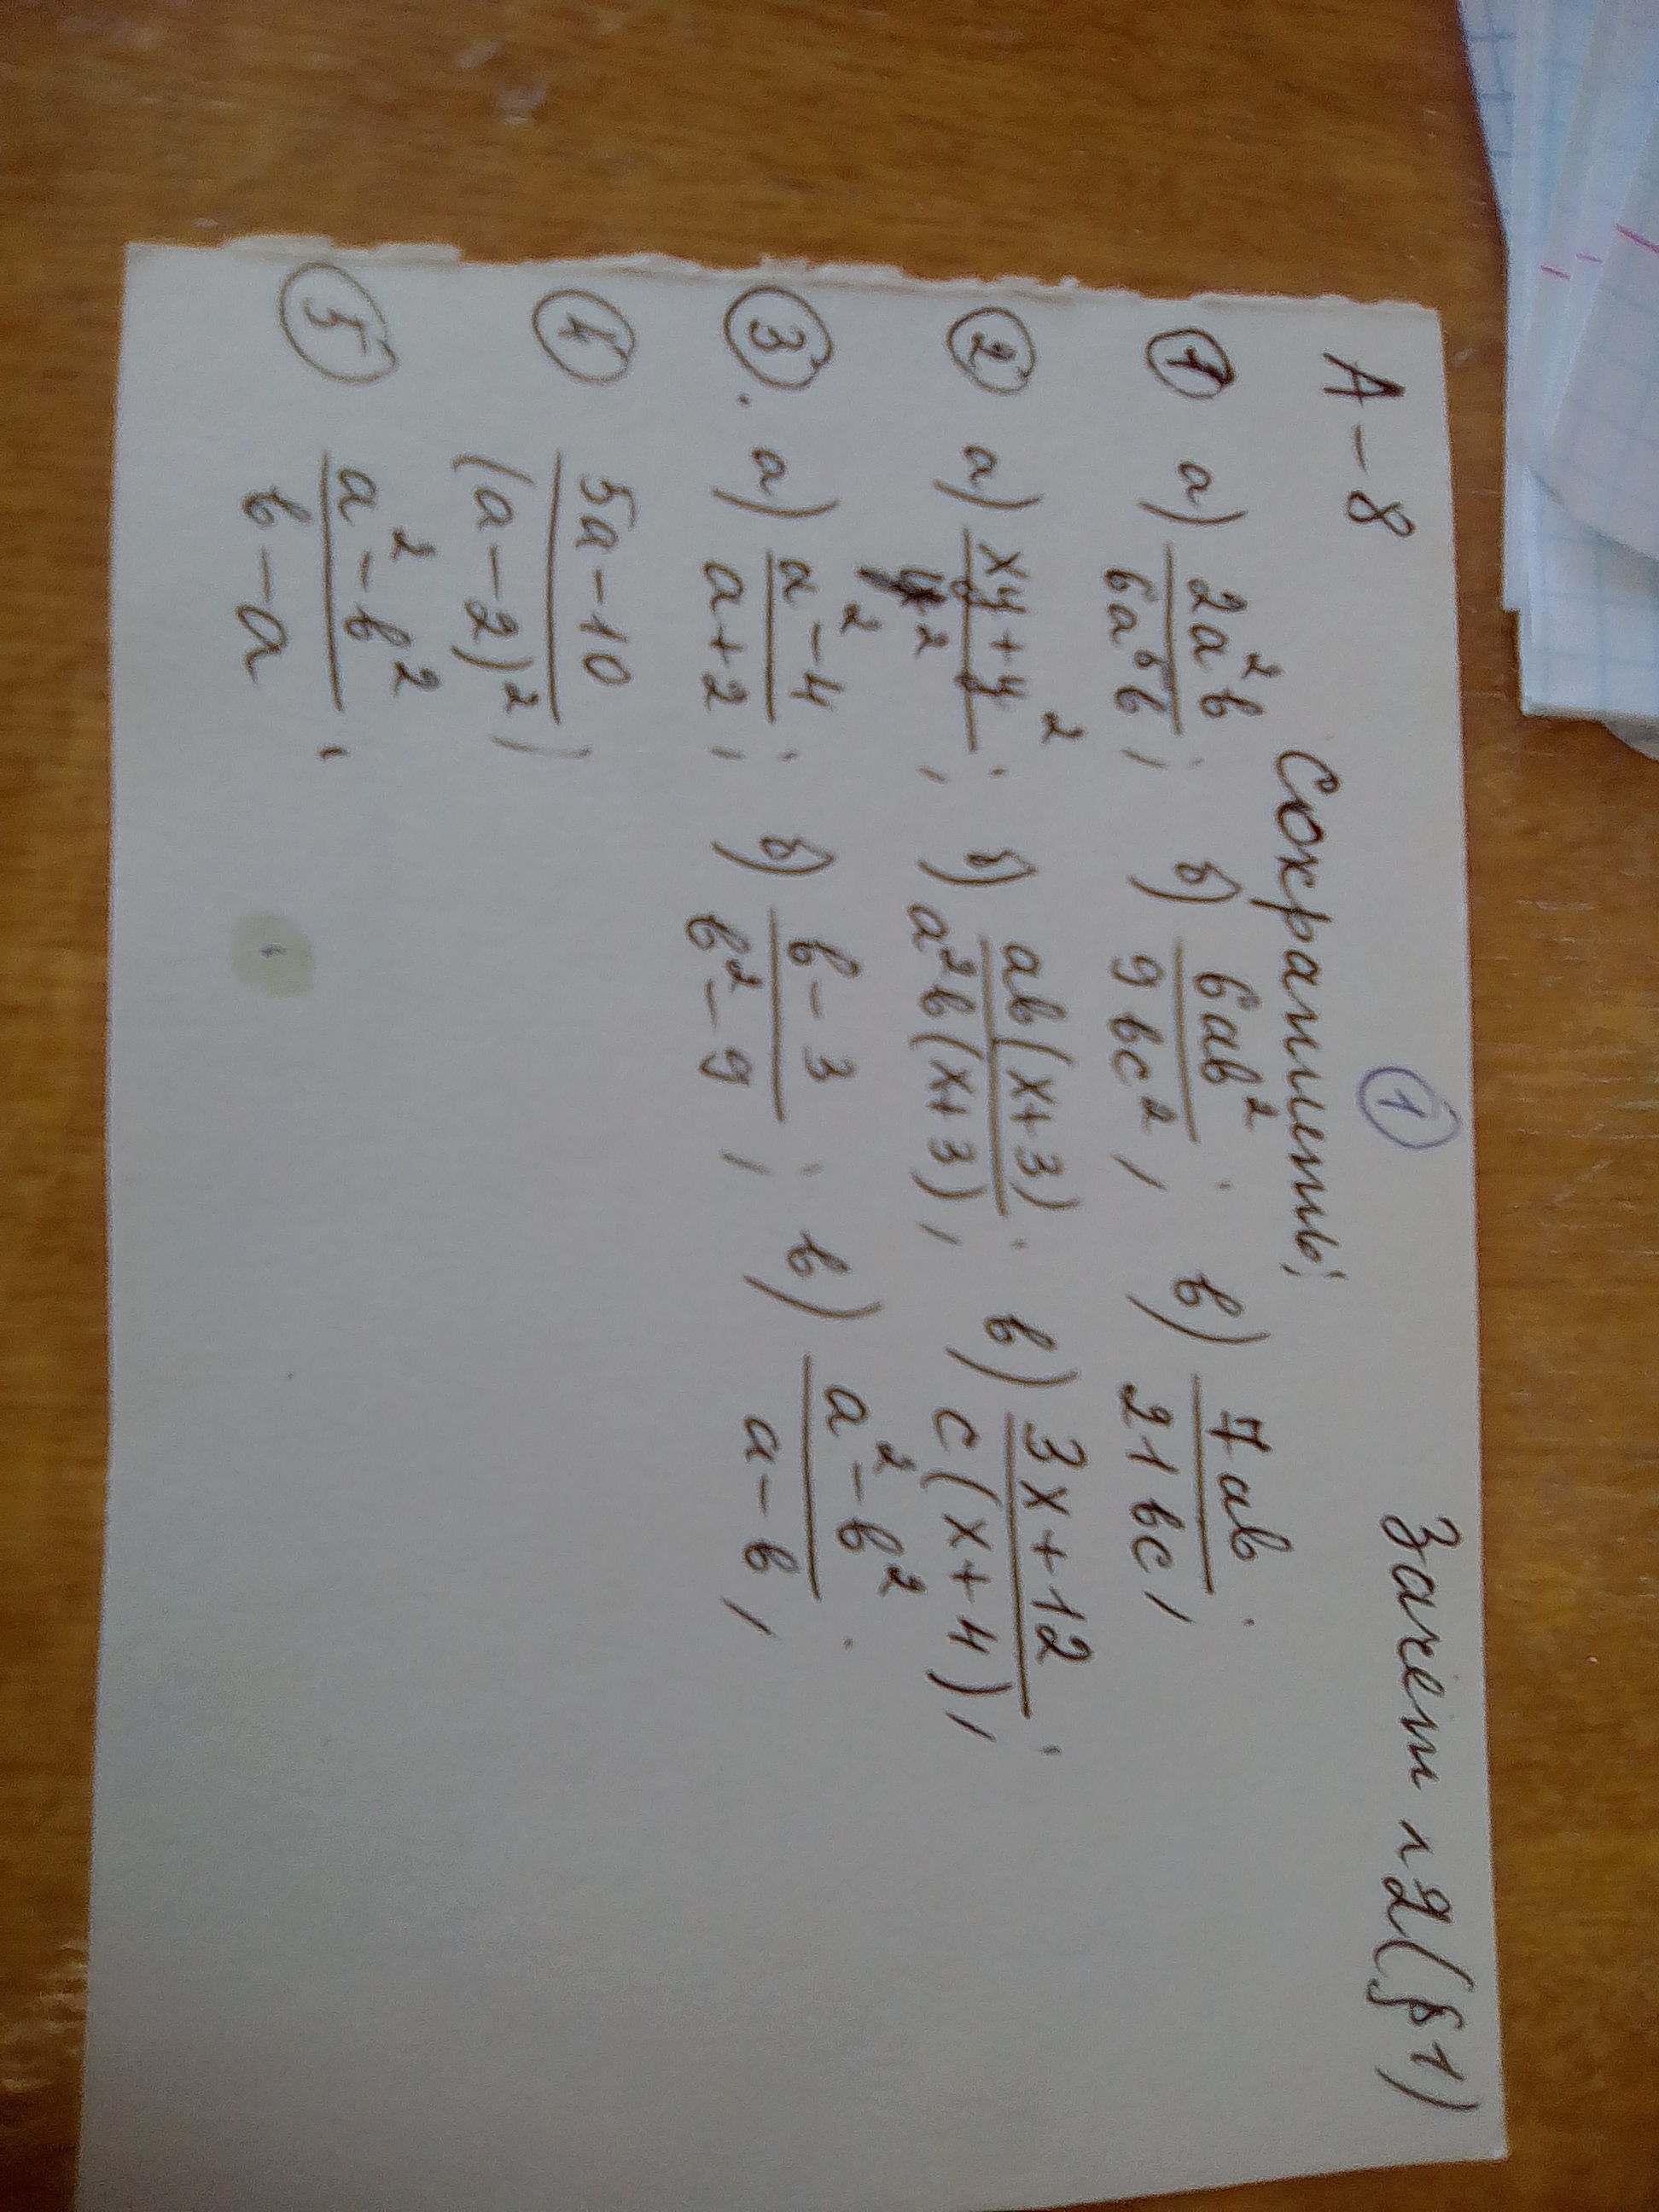 А-8 ① Зачет п2(§1)
Сократить:
① а) 2a²b/6a⁶b; б) 6ab²/9bc²; в) 7ab/21bc;
② а) (xy+y²)/y²; б) ab(x+3)/a²b(x+3); в) (3x+12)/c(x+4);
③. а) (a²-4)/(a+2); б) (b-3)/(b²-9); в) (a²-b²)/(a-b);
④ (5a-10)/(a-2)²
⑤ (a²-b²)/(b-a).